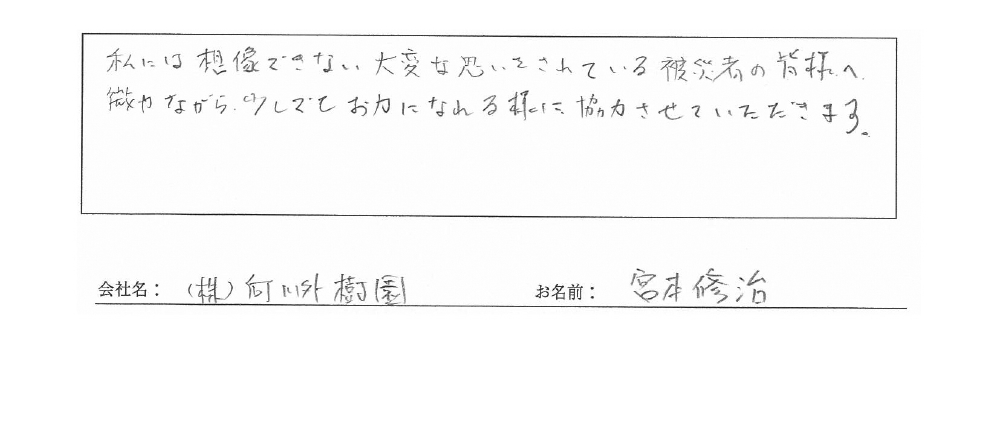 私には想像できない大変な思いをされている被災者の皆様へ
微力ながら、少しでもお力になれる様に協力させていただきます。
会社名：（株）町川外樹園
お名前：宮本修治